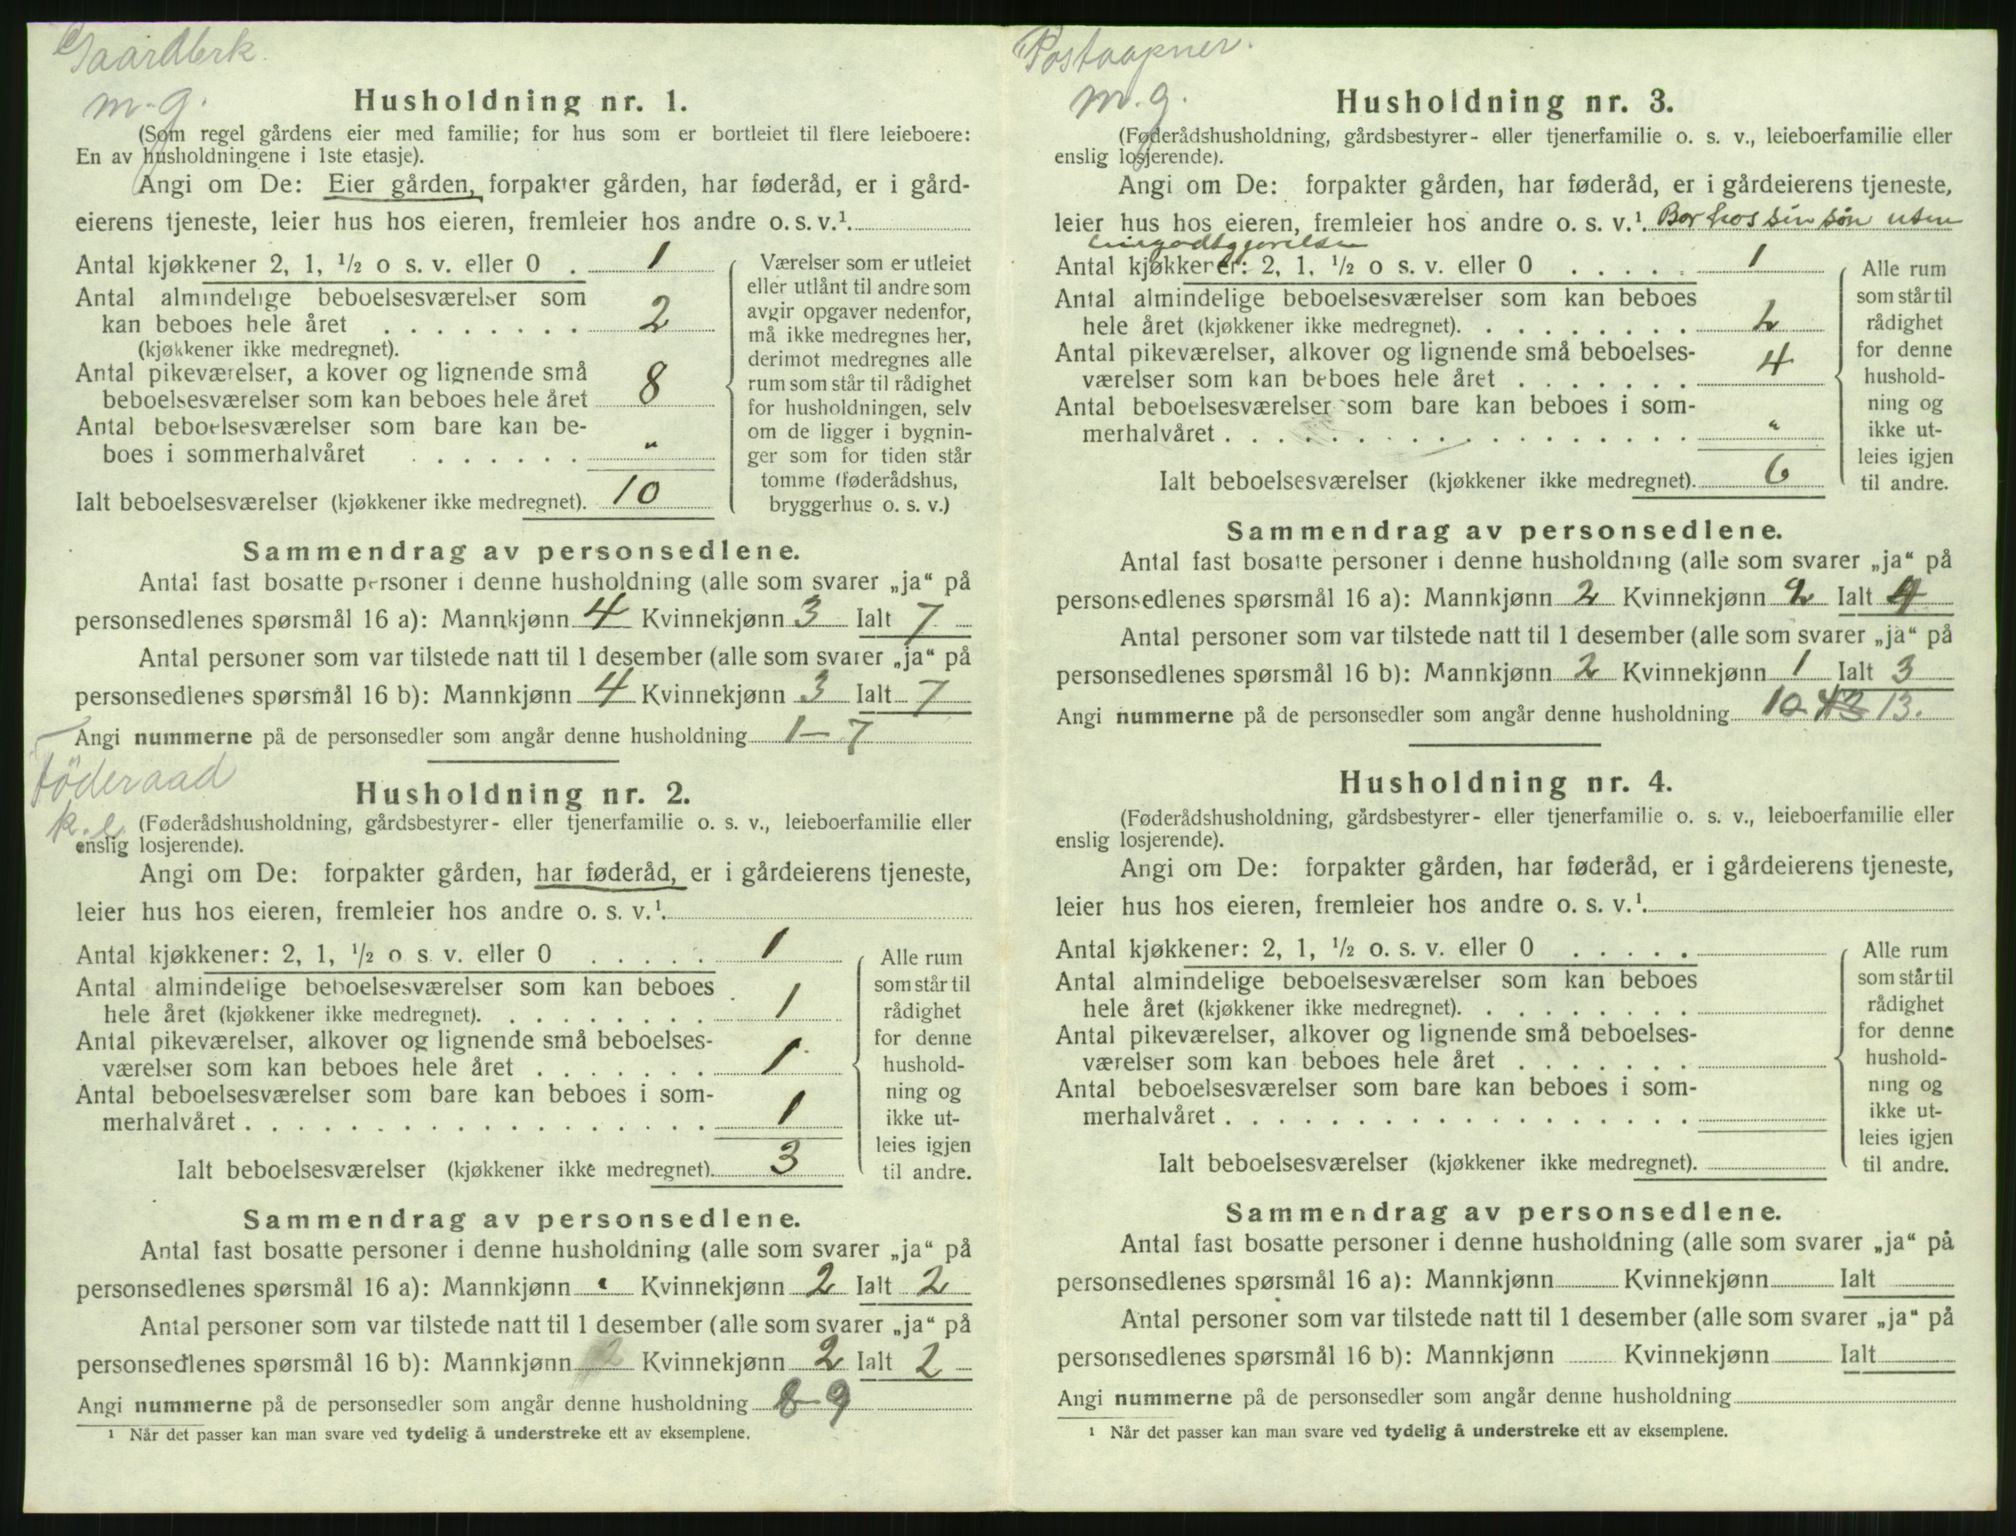 Gaardbrk.
m.g.
Husholdning nr. 1.
(Som regel gårdens eier med familie; for hus som er bortleiet til flere leieboere:
En av husholdningene i 1ste etasje).
Angi om De: Eier gården, forpakter gården, har føderåd, er i gård-
eierens tjeneste, leier hus hos eieren, fremleier hos andre o. s. v.¹.
Antal kjøkkener 2, 1, ½ o s. v. eller 0 . 1
Antal almindelige beboelsesværelser som
kan beboes hele året . . . . . . . . 2
(kjøkkener ikke medregnet).
Antal pikeværelser, a kover og lignende små
beboelsesværelser som kan beboes hele året 8
Antal beboelsesværelser som bare kan be-
boes i sommerhalvåret . . . . . . "
Ialt beboelsesværelser (kjøkkener ikke medregnet). 10
Værelser som er utleiet
eller utlånt til andre som
avgir opgaver nedenfor,
må ikke medregnes her,
derimot medregnes alle
rum som står til rådighet
for husholdningen, selv
om de ligger i bygnin-
ger som for tiden står
tomme (føderådshus,
bryggerhus o. s. v.)
Sammendrag av personsedlene.
Antal fast bosatte personer i denne husholdning (alle som svarer „ja“ på
personsedlenes spørsmål 16 a): Mannkjønn 4 Kvinnekjønn 3 Ialt 7
Antal personer som var tilstede natt til 1 desember (alle som svarer „ja“ på
personsedlenes spørsmål 16 b): Mannkjønn 4 Kvinnekjønn 3 Ialt 7
Angi nummerne på de personsedler som angår denne husholdning 1–7
Föderaad
k.e.
Husholdning nr. 2.
(Føderådshusholdning, gårdsbestyrer- eller tjenerfamilie o. s. v., leieboerfamilie eller
enslig losjerende).
Angi om De: forpakter gården, har føderåd, er i gårdeierens tjeneste,
leier hus hos eieren, fremleier hos andre o. s. v.¹.
Antal kjøkkener: 2, 1, ½ o s. v. eller 0 . . . . . 1
Antal almindelige beboelsesværelser som kan beboes
hele året (kjøkkener ikke medregnet). . . . . . . . . 1
Antal pikeværelser, alkover og lignende små beboelses-
værelser som kan beboes hele året . . . . . . . 1
Antal beboelsesværelser som bare kan beboes i som-
merhalvåret . . . . . . . . . . . . . . . . . . 1
Ialt beboelsesværelser (kjøkkener ikke medregnet). 3
Alle rum
som står til
rådighet
for denne
hushold-
ning og
ikke ut-
leies igjen
til andre.
Sammendrag av personsedlene.
Antal fast bosatte personer i denne husholdning (alle som svarer „ja“ på
personsedlenes spørsmål 16 a): Mannkjønn " Kvinnekjønn 2 Ialt 2
Antal personer som var tilstede natt til 1 desember (alle som svarer „ja“ på
personsedlenes spørsmål 16 b): Mannkjønn Kvinnekjønn 2 Ialt 2
Angi nummerne på de personsedler som angår denne husholdning 8-9
¹ Når det passer kan man svare ved tydelig å understreke ett av eksemplene.
Postaapner.
m.g.
Husholdning nr. 3.
(Føderådshusholdning, gårdsbestyrer- eller tjenerfamilie o. s. v., leieboerfamilie eller
enslig losjerende).
Angi om De: forpakter gården, har føderåd, er i gårdeierens tjeneste,
leier hus hos eieren, fremleier hos andre o. s. v.¹. Bor hos sin søn uten
Antal kjøkkener: 2, 1, ½ o s. v. eller 0 . . . . . 1
Antal almindelige beboelsesværelser som kan beboes
hele året (kjøkkener ikke medregnet). . . . . . . . . 2
Antal pikeværelser, alkover og lignende små beboelses-
værelser som kan beboes hele året . . . . . . . 4
Antal beboelsesværelser som bare kan beboes i som-
merhalvåret . . . . . . . . . . . . . . . . . . "
Ialt beboelsesværelser (kjøkkener ikke medregnet). 6
Alle rum
som står til
rådighet
for denne
hushold-
ning og
ikke ut-
leies igjen
til andre.
Sammendrag av personsedlene.
Antal fast bosatte personer i denne husholdning (alle som svarer „ja“ på
personsedlenes spørsmål 16 a): Mannkjønn 2 Kvinnekjønn 2 Ialt 4
Antal personer som var tilstede natt til 1 desember (alle som svarer „ja“ på
personsedlenes spørsmål 16 b): Mannkjønn 2 Kvinnekjønn 1 Ialt 3
Angi nummerne på de personsedler som angår denne husholdning 10- 13.
Husholdning nr. 4.
(Føderådshusholdning, gårdsbestyrer- eller tjenerfamilie o. s. v., leieboerfamilie eller
enslig losjerende).
Angi om De: forpakter gården, har føderåd, er i gårdeierens tjeneste,
leier hus hos eieren, fremleier hos andre o. s. v.¹.
Antal kjøkkener: 2, 1, ½ o. s. v. eller 0 . . . . .
Antal almindelige beboelsesværelser som kan beboes
hele året (kjøkkener ikke medregnet). . . . . . . . .
Antal pikeværelser, alkover og lignende små beboelses-
værelser som kan beboes hele året . . . . . . .
Antal beboelsesværelser som bare kan beboes i som-
merhalvåret . . . . . . . . . . . . . . . . . .
Ialt beboelsesværelser (kjøkkener ikke medregnet).
Alle rum
som står til
rådighet
for denne
hushold-
ning og
ikke ut-
leies igjen
til andre.
Sammendrag av personsedlene.
Antal fast bosatte personer i denne husholdning (alle som svarer „ja“ på
personsedlenes spørsmål 16 a): Mannkjønn Kvinnekjønn Ialt
Antal personer som var tilstede natt til 1 desember (alle som svarer „ja“ på
personsedlenes spørsmål 16 b): Mannkjønn Kvinnekjønn Ialt
Angi nummerne på de personsedler som angår denne husholdning
¹ Når det passer kan man svare ved tydelig å understreke ett av eksemplene.